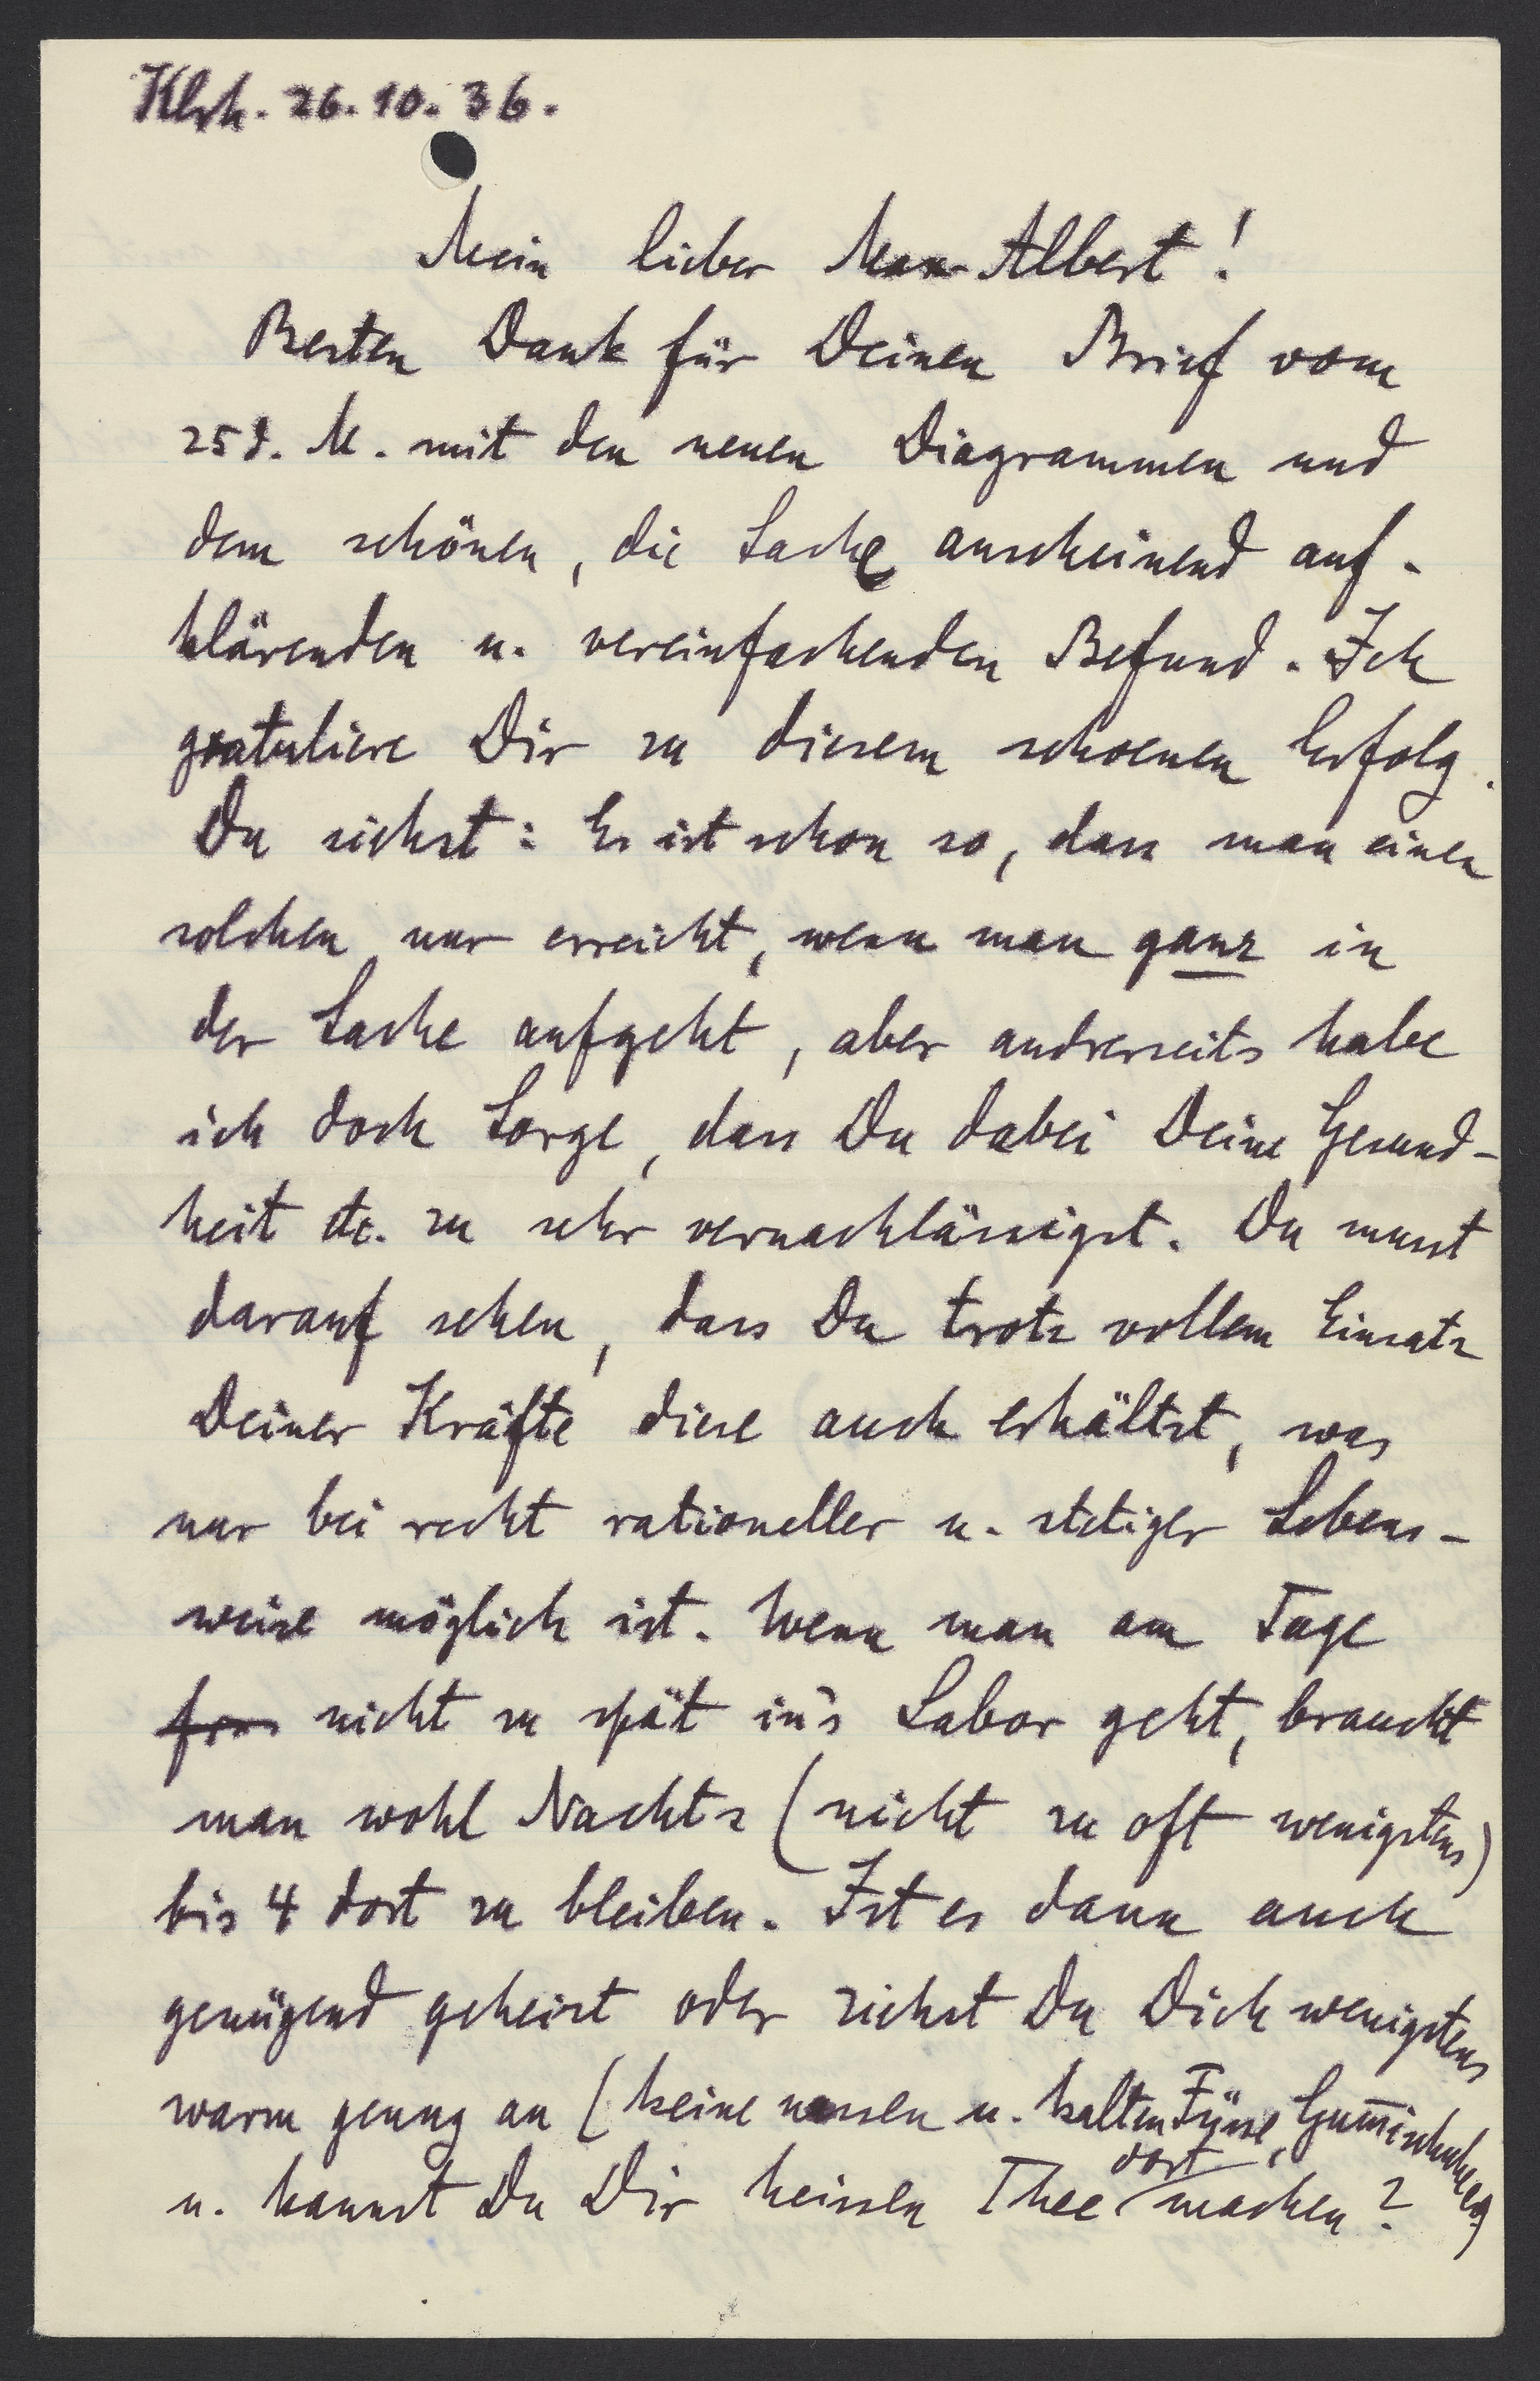 Klrh. 26.10.36.
Mein lieber Max-Albert!
Besten Dank für Deinen Brief vom
25 d. M. mit den neuen Diagrammen und
dem schönen, die Sache anscheinend auf-
klärenden u. vereinfachenden Befund. Ich
gratuliere Dir zu diesem schoenen Erfolg.
Du siehst: Es ist schon so, dass man einen
solchen nur erreicht, wenn man ganz in
der Sache aufgeht, aber andrerseits habe
ich doch Sorge, dass Du dabei Deine Gesund-
heit etc. zu sehr vernachlässigst. Du musst
darauf sehen, dass Du trotz vollem Einsatz
Deiner Kräfte diese auch erhältst, was
nur bei recht rationeller u. stetiger Lebens-
weise möglich ist. Wenn man am Tage
nicht zu spät in's Labor geht, braucht
man wohl Nachts (nicht zu oft wenigstens)
bis 4 dort zu bleiben. Ist es dann auch
genügend geheizt oder ziehst Du Dich wenigstens
warm genug an (keine nassen u. kalten Füsse, Gum̅ischuhe)
u. kannst Du Dir heissen Thee dort machen?